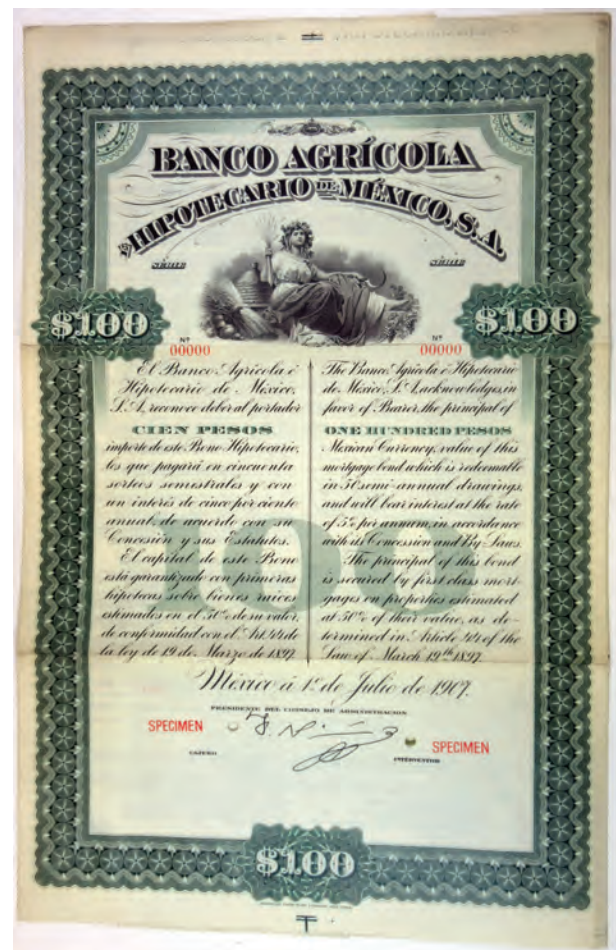 BANCO AGRÍCOLA
É HIPOTECARIO DE MÉXICO, S.A.
SÉRIE
SÉRIE
$100
$100
Nº
00000
Nº
00000
El Banco Agrícola é
Hipotecario de México,
S.A. reconoce deber al portador
CIEN PESOS
importe de este Bono Hipotecario,
los que pagará en cincuenta
sorteos semestrales y con
un interés de cinco por ciento
anual, de acuerdo con su
Concesión y sus Estatutos.
El capital de este Bono
está garantizado con primeras
hipotecas sobre bienes raíces
estimados en el 50% de su valor,
de conformidad con el Art. 44 de
la ley de 19 de Marzo de 1897.
The Banco Agrícola é Hipotecario
de México, S.A. acknowledges, in
favor of Bearer, the principal of
ONE HUNDRED PESOS
Mexican Currency, value of this
mortgage bond which is redeemable
in 50 semi-annual drawings,
and will bear interest at the rate
of 5% per annum, in accordance
with its Concession and By-Laws.
The principal of this bond
is secured by first class mort-
gages on properties estimated
at 50% of their value, as de-
termined in Article 44 of the
Law of March 19th 1897.
100
México á 1º de Julio de 1907.
PRESIDENTE DEL CONSEJO DE ADMINISTRACION
SPECIMEN
SPECIMEN
CAJERO
INTERVENTOR
$100